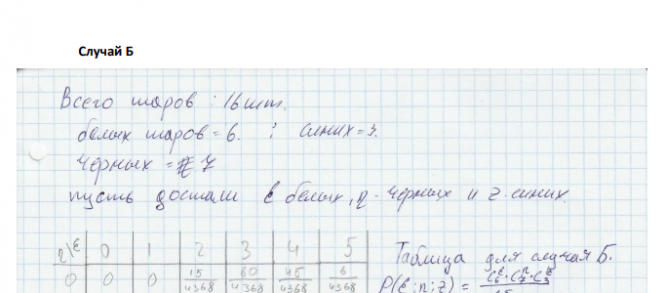 Случай Б
Всего шаров : 16 шт.
белых шаров = 6. ; синих = 3.
черных = 7
пусть достали ξ белых, η - черных и z - синих.
η\ξ 0 1 2 3 4 5
0 0 0 15/4368 60/4368 45/4368 6/4368
Таблица для случая Б.
P(ξ;η;z) =